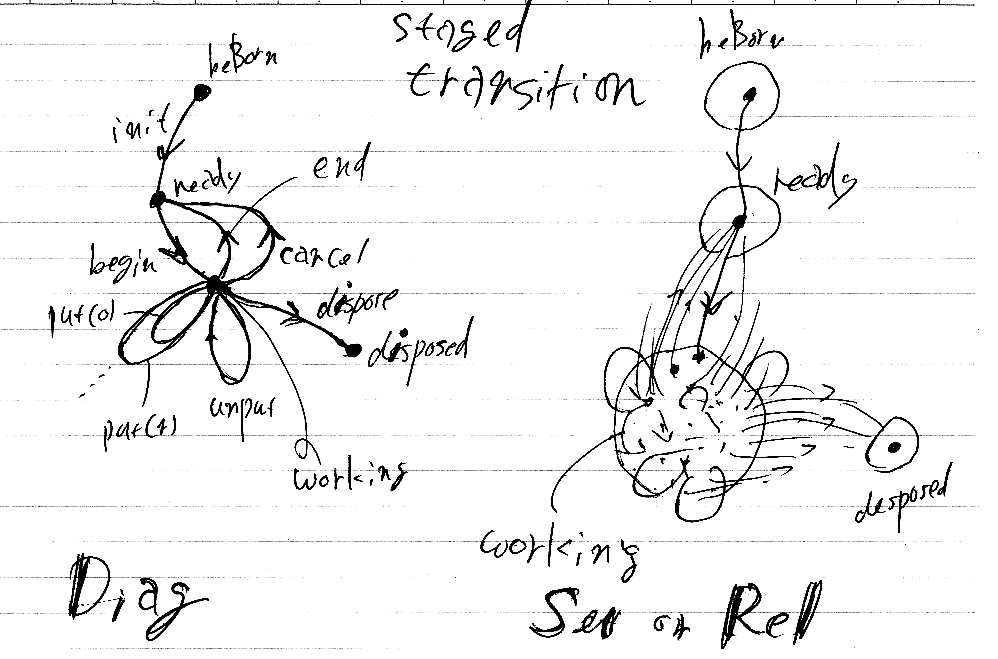 staged
transition
beBorn
init
ready
end
begin
cancel
put(0)
dispose
disposed
put(1)
unput
working
Diag
beBorn
ready
disposed
working
Set or Rel